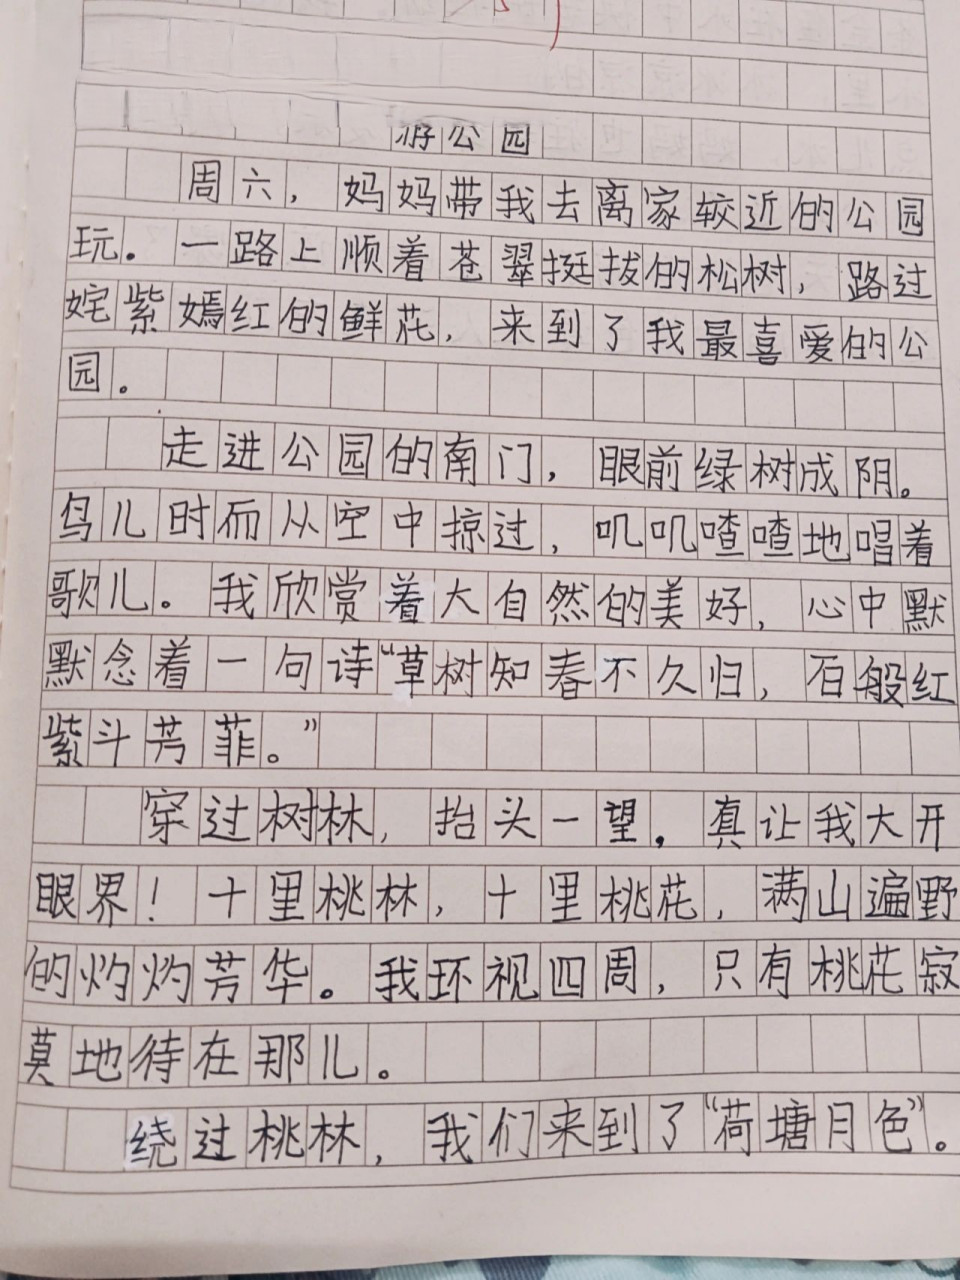 游公园
周六，妈妈带我去离家较近的公园
玩。一路上顺着苍翠挺拔的松树，路过
姹紫嫣红的鲜花，来到了我最喜爱的公
园。
走进公园的南门，眼前绿树成阴。
鸟儿时而从空中掠过，叽叽喳喳地唱着
歌儿。我欣赏着大自然的美好，心中默
默念着一句诗“草树知春不久归，百般红
紫斗芳菲。”
穿过树林，抬头一望，真让我大开
眼界！十里桃林，十里桃花，满山遍野
的灼灼芳华。我环视四周，只有桃花寂
莫地待在那儿。
绕过桃林，我们来到了“荷塘月色”。